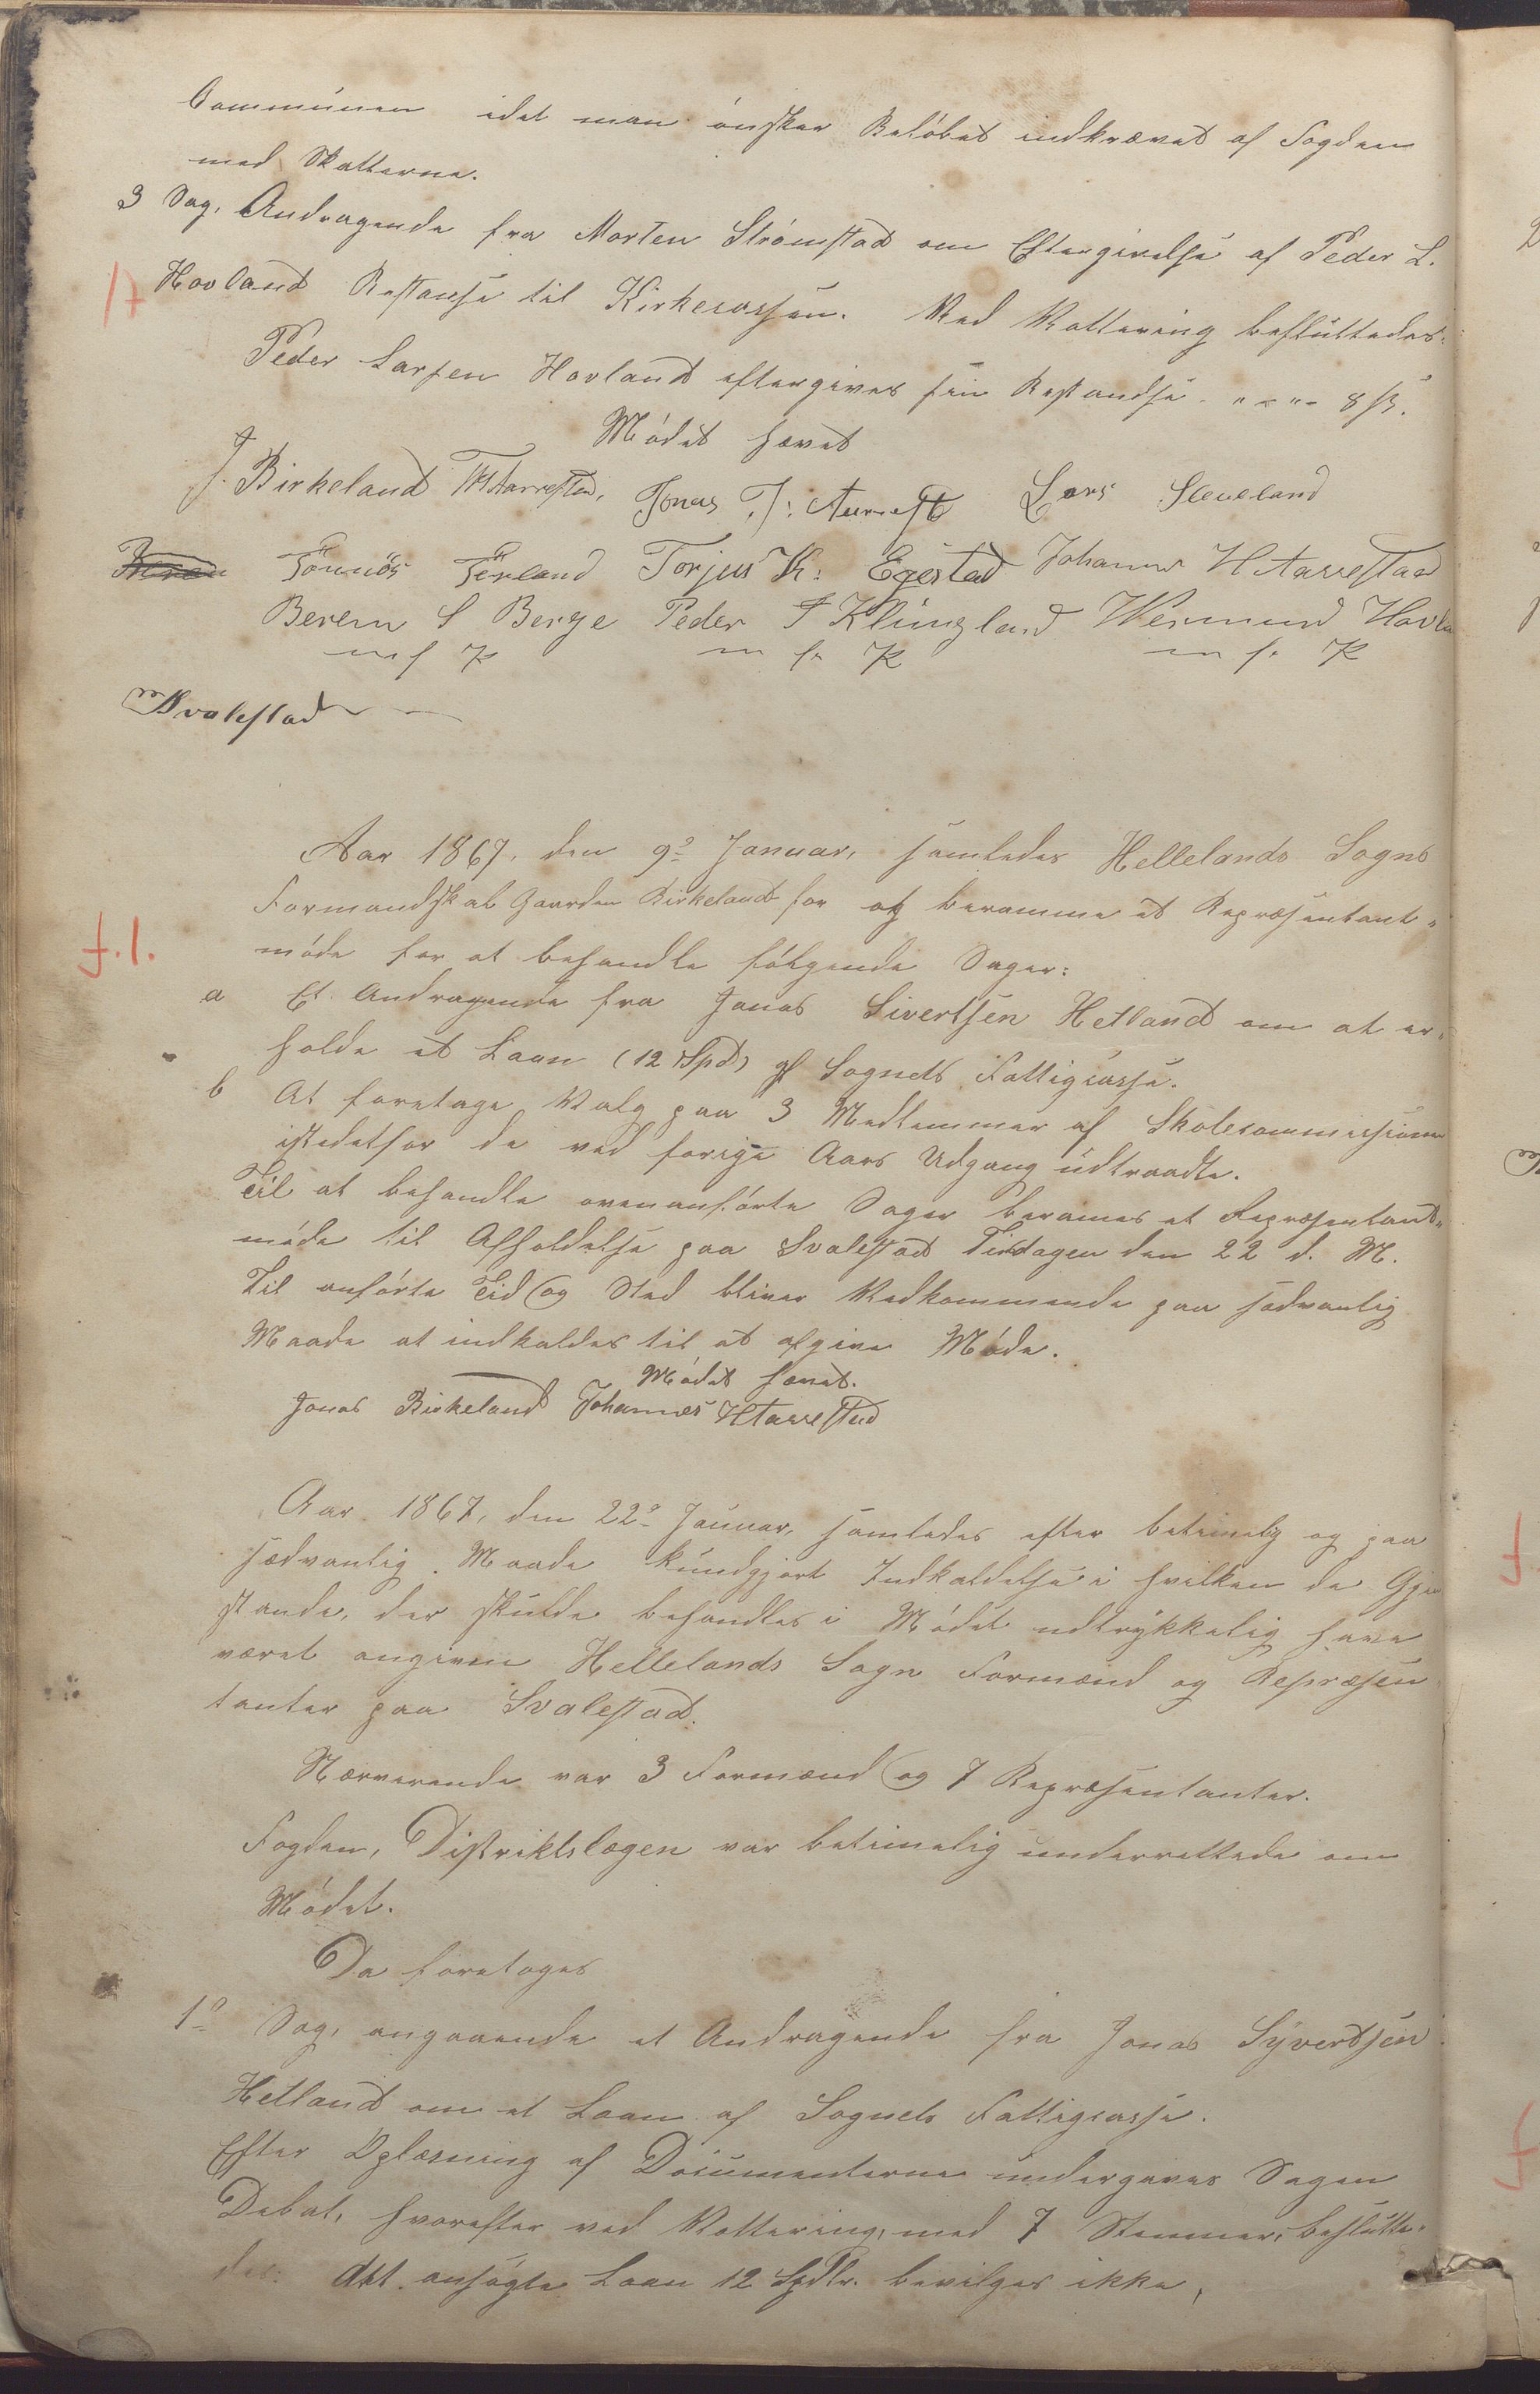 Communen idet man ønsker Beløbet indkrævet af Fogden
med Skatterne.
3 Sag, Andragende fra Morten Strømstad om Eftergivelse af Peder L.
Hovland Restanse til Kirkecassen. Ved Vottering besluttedes:
Peder Larsen Hovland eftergives sin Restandse - " - " - 8 ß.
Mødet hævet
J. Birkeland Jonas J. Lars Sleveland
Tønnes Terland Torjus K. Egestad Johannes H Aarrestad
Berem S Berge Peder T Klungland Wermund Hovla
m f P m f. P m f. P
Svalestad
Aar 1867, den 9de Januar, samledes Hellelands Sogns
Formandskab Gaarden Birkeland for at beramme et Repræsentant-
møde for at behandle følgende Sager:
f. 1.
a Et Andragende fra Jonas Sivertsen Hetland om at er-
holde et Laan (12 Spd) af Sognets Fattigcasse.
b At foretage Valg paa 3 Medlemmer af Skolecommissionen
istedetfor de ved forige Aars Udgang udtraadte.
Til at behandle ovenanførte Sager berames et Repræsentant-
møde til Afholdelse paa Svalestad Tirsdagen den 22 d. M.
Til anførte Tid og Sted bliver Vedkommende paa sædvanlig
Maade at indkaldes til at afgive Møde.
Mødet hævet.
Jonas Birkeland Johannes H Aarrestad
Aar 1867, den 22de Januar, samledes efter betimelig og paa
sædvanlig Maade kundgjort Indkaldelse i hvilken de Gjen
stande, der skulde behandles i Mødet udtrykkelig have
været angiven Hellelands Sogn Formænd og Repræsen
tanter paa Svalestad.
Nærverende var 3 Formænd og 7 Repræsentanter.
Fogden, Distriktslægen var betimelig underrettede om
Mødet.
Da foretoges
1o Sag, angaaende et Andragende fra Jonas Syvertsen
Hetland om et Laan af Sognets Fattigcasse.
Efter Oplæsning af Documenterne undergaves Sagen
Debat, hvorefter ved Vottering, med 7 Stemmer, beslutte-
des: det ansøgte Laan 12 Spdlr. bevilges ikke,